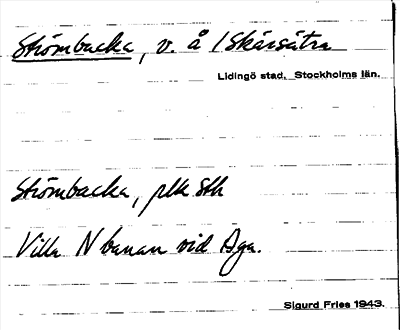 Strömbacka, v. å / Skärsätra
Lidingö stad, Stockholms län.
Strömbacka, plk Sth
Villa N banan vid Aga.
Sigurd Fries 1943.